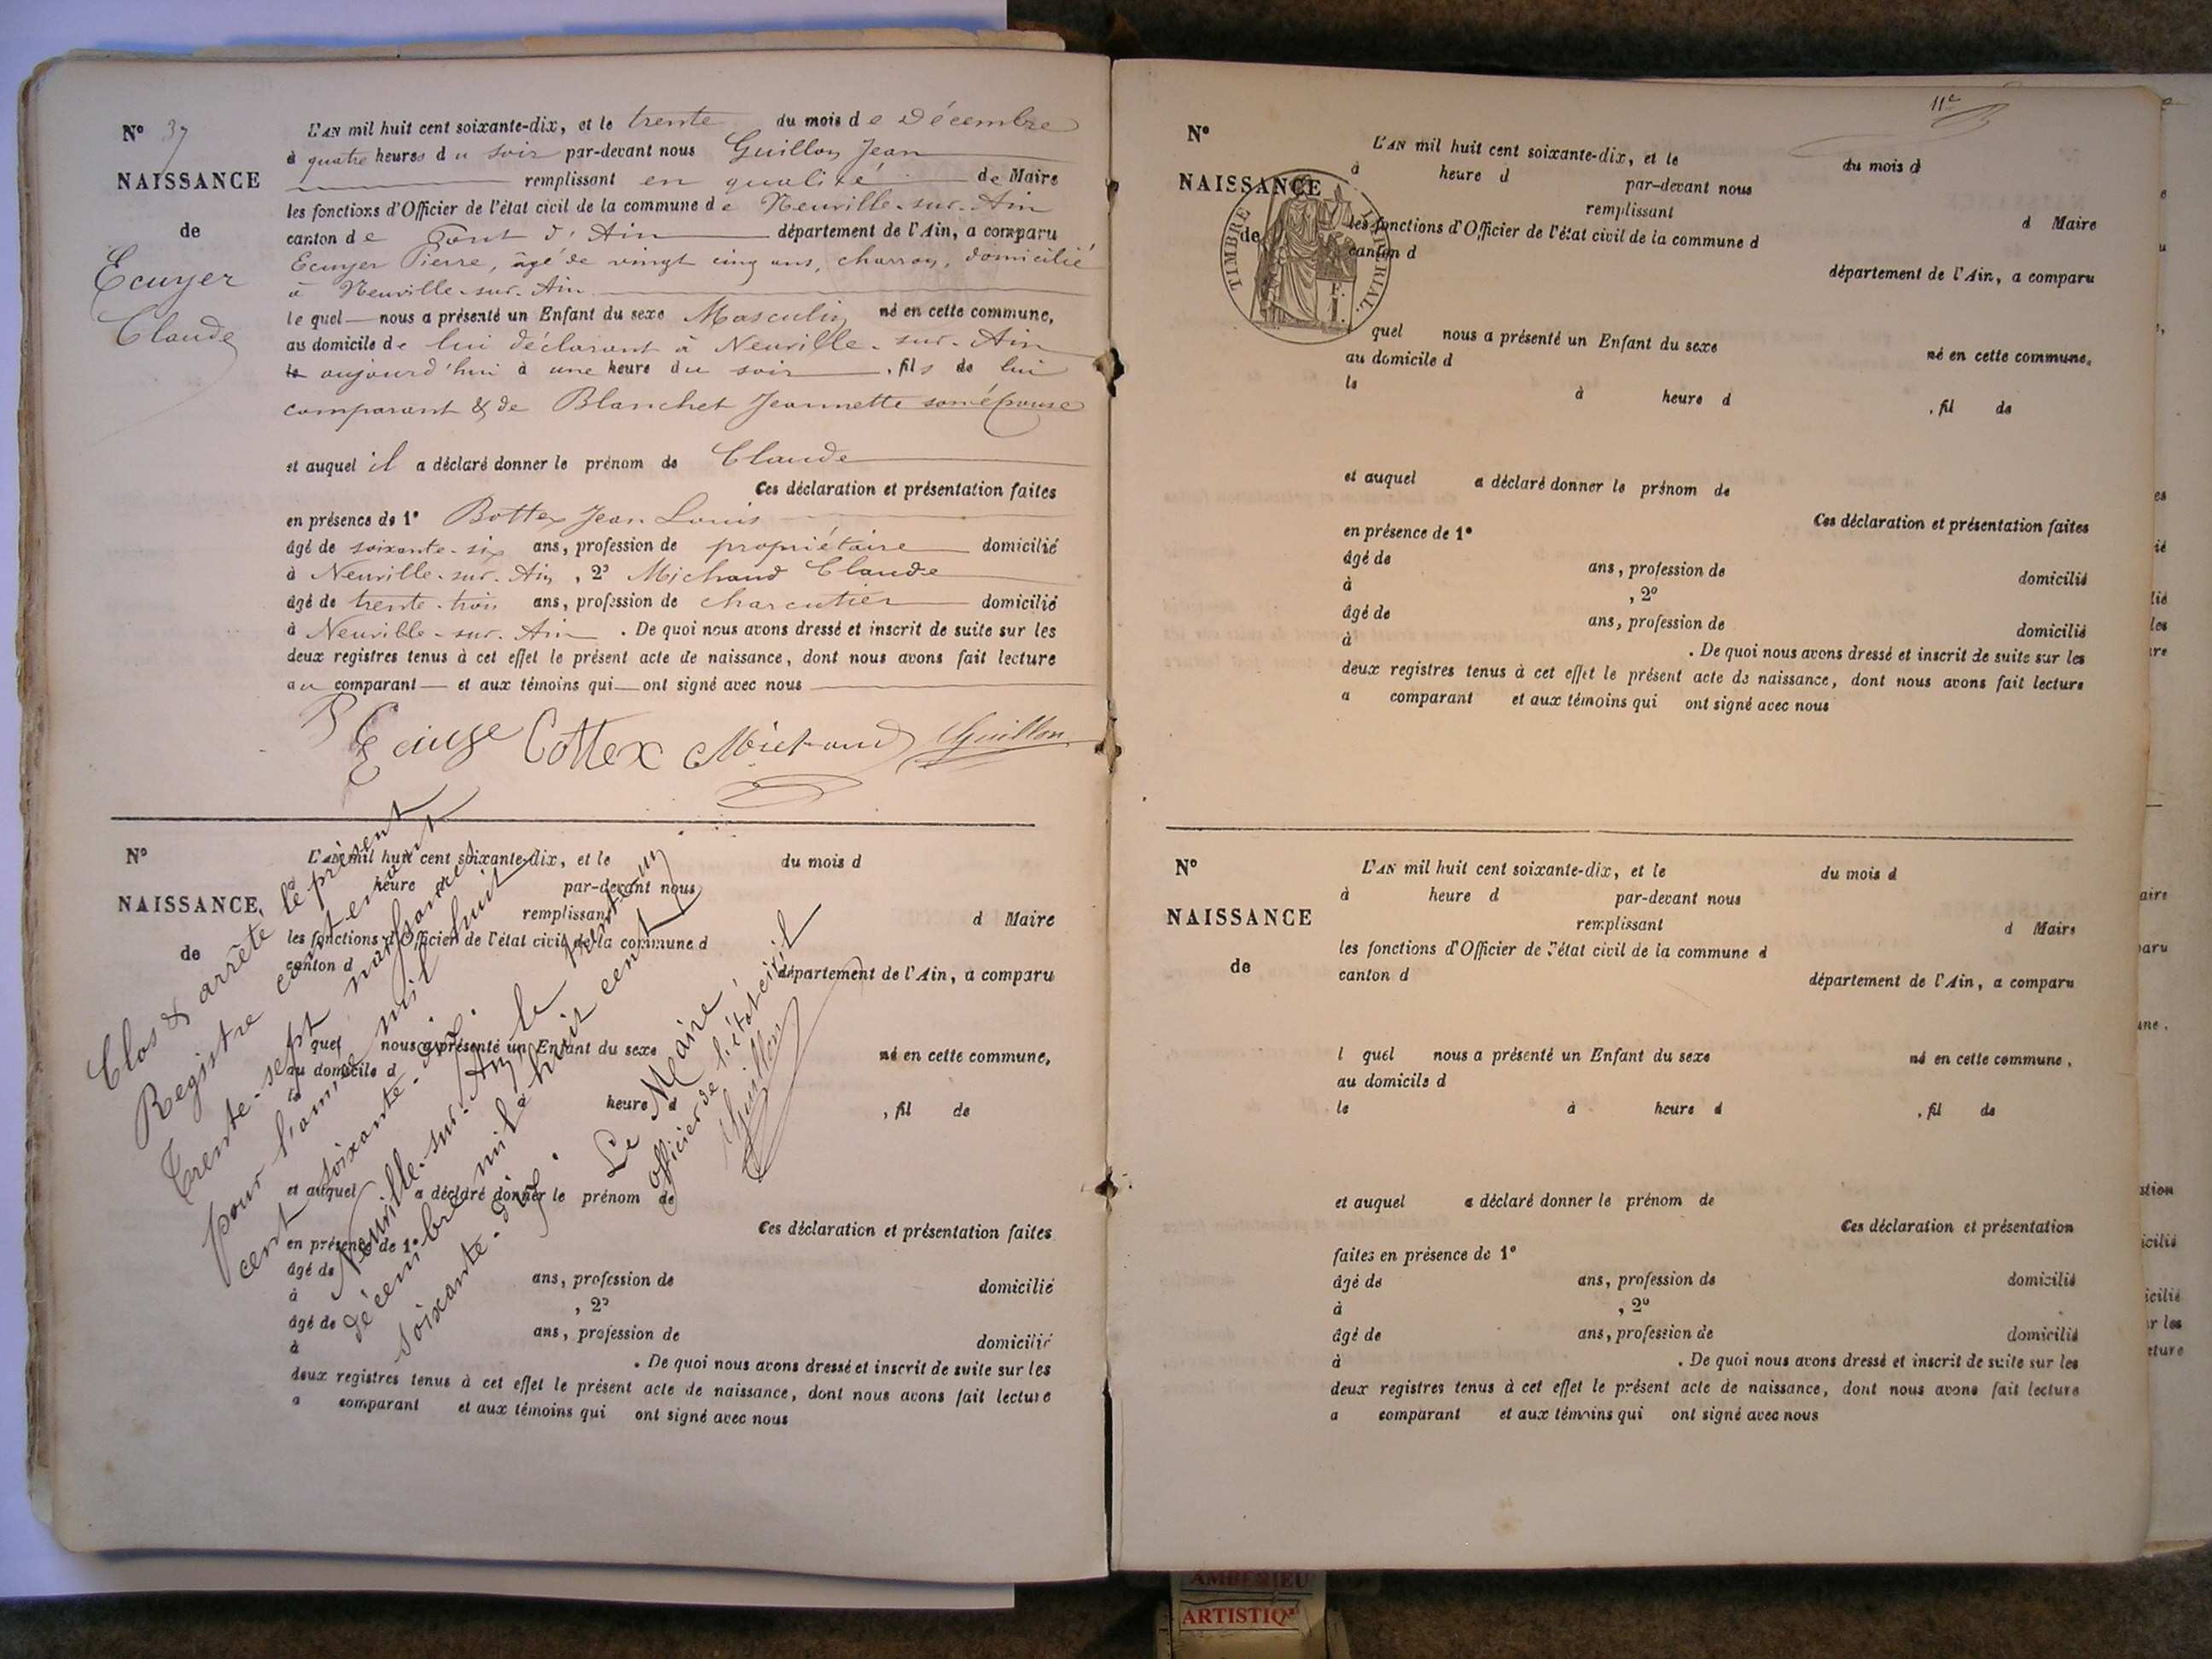 N° 37
NAISSANCE
de
Ecuyer
Claude
L'AN mil huit cent soixante-dix, et le trente du mois de Décembre
à quatre heures du soir par-devant nous Guillon Jean
remplissant en qualité de Maire
les fonctions d'Officier de l'état civil de la commune de Neuville-sur-Ain
canton de Pont d'Ain département de l'Ain, a comparu
Ecuyer Pierre, âgé de vingt cinq ans, charron, domicilié
à Neuville-sur-Ain
le quel nous a présenté un Enfant du sexe Masculin né en cette commune,
au domicile de lui déclarant à Neuville-sur-Ain
le aujourd'hui à une heure du soir, fils de lui
comparant & de Blanchet Jeannette son épouse
et auquel il a déclaré donner le prénom de Claude
Ces déclaration et présentation faites
en présence de 1° Bottex Jean Louis
âgé de soixante-six ans, profession de propriétaire domicilié
à Neuville-sur-Ain, 2° Michaud Claude
âgé de trente-trois ans, profession de charcutier domicilié
à Neuville-sur-Ain. De quoi nous avons dressé et inscrit de suite sur les
deux registres tenus à cet effet le présent acte de naissance, dont nous avons fait lecture
au comparant et aux témoins qui ont signé avec nous
Cottex Michaud Guillon
N°
NAISSANCE
de
L'AN mil huit cent soixante-dix, et le du mois d
heure d par-devant nous
remplissant d Maire
les fonctions d'Officier de l'état civil de la commune d
canton d département de l'Ain, a comparu
quel nous a présenté un Enfant du sexe né en cette commune,
au domicile d
le à heure d , fil de
et auquel a déclaré donner le prénom de
Ces déclaration et présentation faites
en présence de 1°
âgé de ans, profession de domicilié
à , 2°
âgé de ans, profession de domicilié
à . De quoi nous avons dressé et inscrit de suite sur les
deux registres tenus à cet effet le présent acte de naissance, dont nous avons fait lecture
a comparant et aux témoins qui ont signé avec nous
Clos & arrêté le présent
Registre contenant
Trente-sept naissances
pour l'année mil huit
cent soixante-dix.
Neuville-sur-Ain le trente-un
décembre mil huit cent
soixante-dix.
Le Maire,
officier de l'état civil
Guillon
11e
N°
NAISSANCE
de
TIMBRE IMPÉRIAL
L'AN mil huit cent soixante-dix, et le du mois d
à heure d par-devant nous
remplissant d Maire
les fonctions d'Officier de l'état civil de la commune d
canton d département de l'Ain, a comparu
quel nous a présenté un Enfant du sexe né en cette commune,
au domicile d
le à heure d , fil de
et auquel a déclaré donner le prénom de
Ces déclaration et présentation faites
en présence de 1°
âgé de ans, profession de domicilié
à , 2°
âgé de ans, profession de domicilié
à . De quoi nous avons dressé et inscrit de suite sur les
deux registres tenus à cet effet le présent acte de naissance, dont nous avons fait lecture
a comparant et aux témoins qui ont signé avec nous
N°
NAISSANCE
de
L'AN mil huit cent soixante-dix, et le du mois d
à heure d par-devant nous
remplissant d Maire
les fonctions d'Officier de l'état civil de la commune d
canton d département de l'Ain, a comparu
l quel nous a présenté un Enfant du sexe né en cette commune,
au domicile d
le à heure d , fil de
et auquel a déclaré donner le prénom de
Ces déclaration et présentation
faites en présence de 1°
âgé de ans, profession de domicilié
à , 2°
âgé de ans, profession de domicilié
à . De quoi nous avons dressé et inscrit de suite sur les
deux registres tenus à cet effet le présent acte de naissance, dont nous avons fait lecture
a comparant et aux témoins qui ont signé avec nous
AMBERIEU
ARTISTIQ